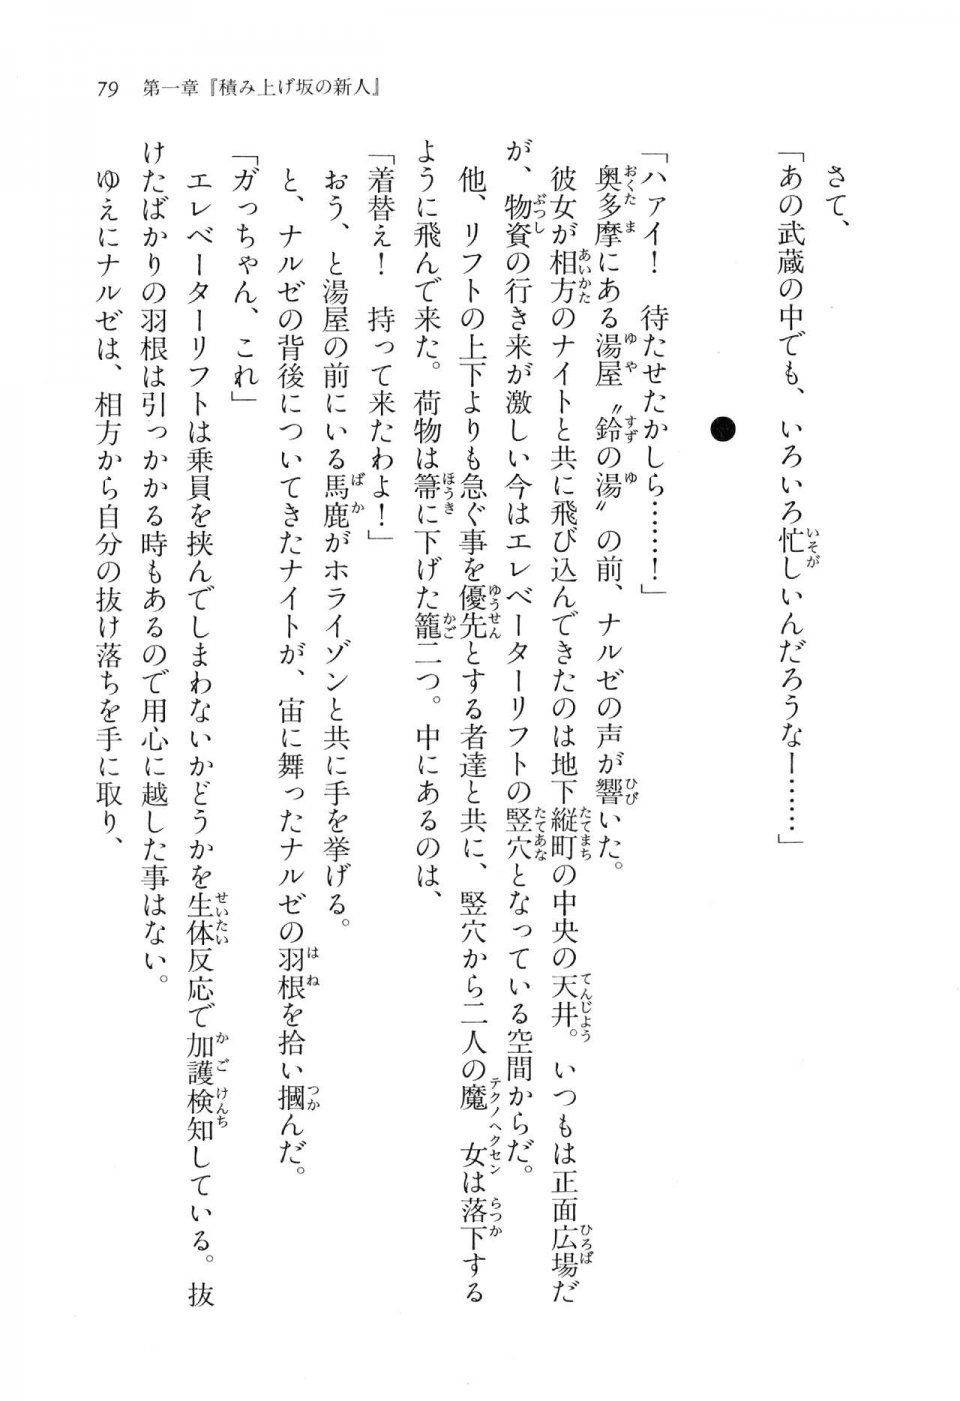 79　第一章『積み上げ坂の新人』
さて、
「あの武蔵の中でも、いろいろ忙しいんだろうなー……」
●
「ハァイ！　待たせたかしら……！」
奥多摩にある湯屋〝鈴の湯〟の前、ナルゼの声が響いた。
彼女が相方のナイトと共に飛び込んできたのは地下縦町の中央の天井。いつもは正面広場だ
が、物資の行き来が激しい今はエレベーターリフトの竪穴となっている空間からだ。
他、リフトの上下よりも急ぐ事を優先とする者達と共に、竪穴から二人の魔女は落下する
ように飛んで来た。荷物は箒に下げた籠二つ。中にあるのは、
「着替え！　持って来たわよ！」
おう、と湯屋の前にいる馬鹿がホライゾンと共に手を挙げる。
と、ナルゼの背後についてきたナイトが、宙に舞ったナルゼの羽根を拾い摑んだ。
「ガっちゃん、これ」
エレベーターリフトは乗員を挟んでしまわないかどうかを生体反応で加護検知している。抜
けたばかりの羽根は引っかかる時もあるので用心に越した事はない。
ゆえにナルゼは、相方から自分の抜け落ちを手に取り、